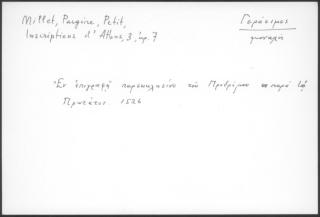 Millet, Pargoire, Petit,
Inscriptions d'Athos, 3, ἀρ. 7
Γεράσιμος
μοναχός
Ἐν ἐπιγραφῇ παρεκκλησίου τοῦ Προδρόμου παρὰ τῷ
Πρωτάτῳ. 1526